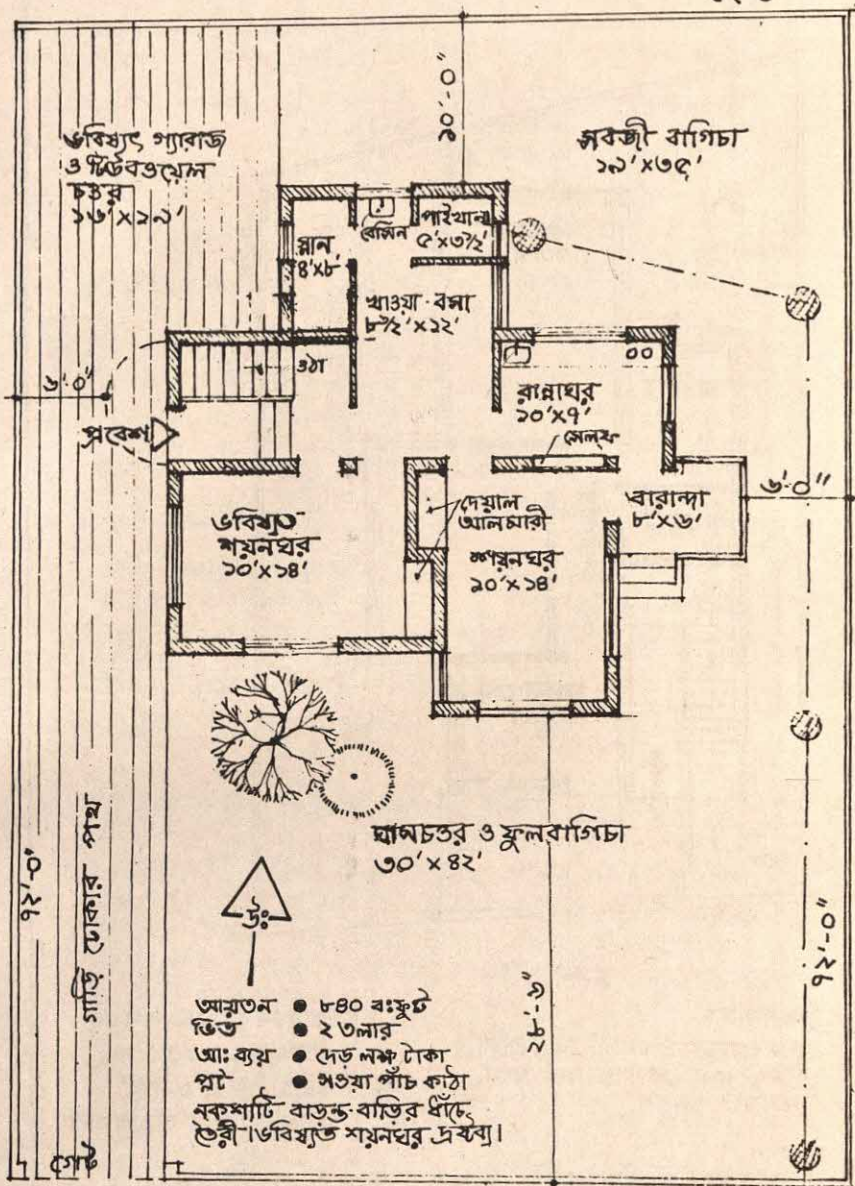 ২০'-০"
ভবিষ্যৎ গ্যারাজ
ও টিউবওয়েল
চত্তর
১৬'X২৯'
সবজী বাগিচা
১৯'X৩৫'
স্নান
৪'X৮'
বেসিন
পাইখানা
৫'X৩½'
খাওয়া-বসা
৮½'X১২'
ওঠা
৬'-০"
প্রবেশ
রান্নাঘর
১০'X৭'
সেলফ
বারান্দা
৮'X৬'
৬'-০"
দেয়াল
আলমারী
ভবিষ্যত
শয়নঘর
১০'X১৪'
শয়নঘর
১০'X১৪'
ঘাসচত্তর ও ফুলবাগিচা
৩০'X৪২'
৭২'-০"
গাড়ি ঢোকার পথ
উঃ
২৮'-৬"
৭২'-০"
আয়তন ● ৮৪০ বঃফুট
ভিত ● ২ তলার
আঃ ব্যয় ● দেড় লক্ষ টাকা
প্লট ● সওয়া পাঁচ কাঠা
নকশাটি বাড়ন্ত-বাড়ির ধাঁচে
তৈরী। ভবিষ্যত শয়নঘর দ্রষ্টব্য।
গেট